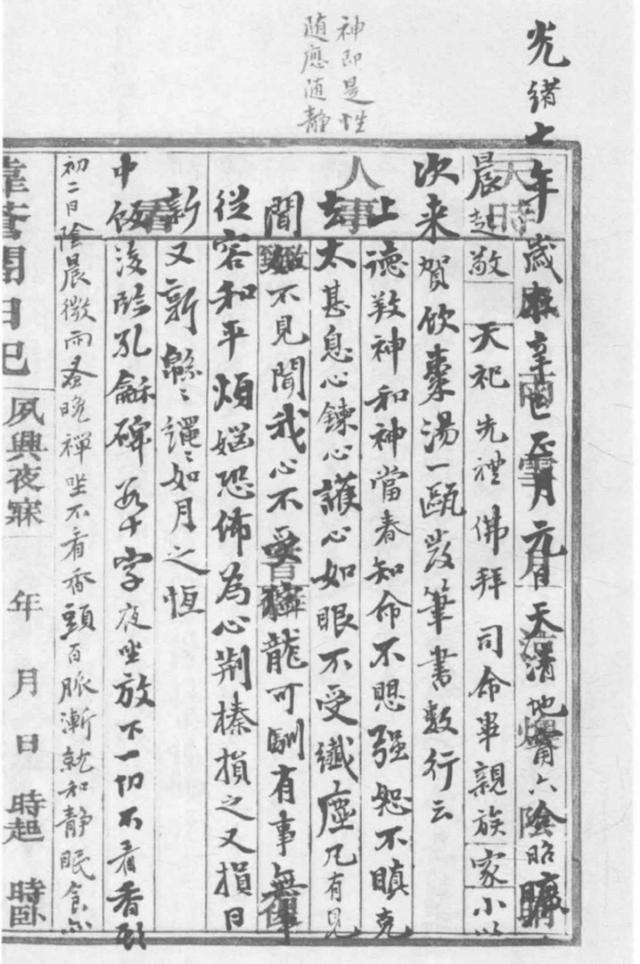 神即是性
随應随静
光緒七年歲在辛巳正月元日天清地甯六陰昭曠
晨起敬天祀先禮佛拜司命畢親族家小以
次来賀飲棗湯一甌发筆書数行云
上德敦神和神當春知命不愳强恕不瞋克
去太甚息心鍊心護心如眼不受纖塵凡有見
聞如不見聞我心不受獰龍可馴有事無事
從容和平煩惱恐怖為心荆榛損之又損日
新又新緜〻繩〻如月之恆
中飯後臨孔龢碑若干字夜坐放下一切不看香頭
初二日陰晨微雨蚤晚禪坐不看香頭百脈漸就和静眠食亦
日记
夙興夜寐 年 月 日 時起 時卧